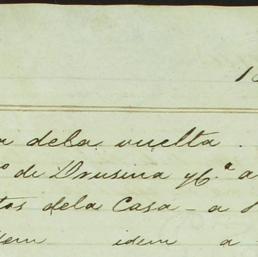 18
a dela vuelta.
º de Drusina y Cª a
tos dela Casa - a
dem idem a